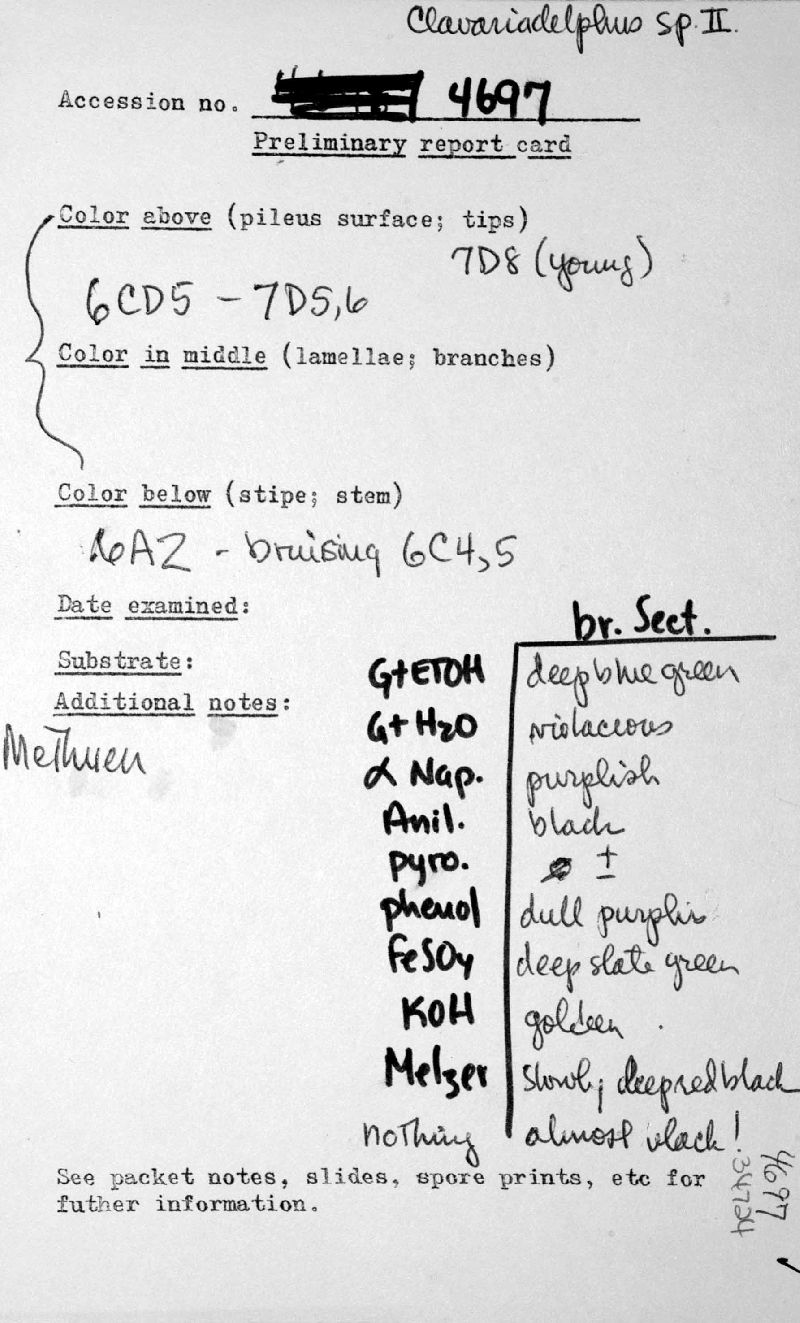 Clavariadelphus sp. II.
Accession no. 4697
Preliminary report card
Color above (pileus surface; tips)
7D8 (young)
6CD5 - 7D5,6
Color in middle (lamellae; branches)
Color below (stipe; stem)
6A2 - bruising 6C4,5
Date examined:
br. Sect.
Substrate:
G+ETOH deep blue green
Additional notes:
G+H2O violaceous
Methuen
α Nap. purplish
Anil. black
pyro. ±
phenol dull purplis
FeSO4 deep slate green
KOH golden
Melzer slowly deep red black
nothing almost black!
See packet notes, slides, spore prints, etc for
futher information.
4697
34724